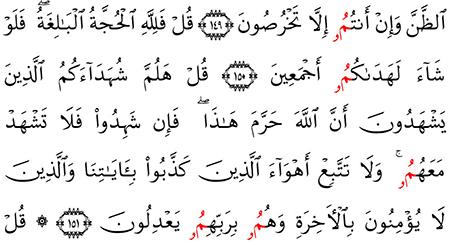 ٱلظَّنَّ وَإِنْ أَنتُمُۥ إِلَّا تَخْرُصُونَ ۝١٤٩ قُلْ فَلِلَّهِ ٱلْحُجَّةُ ٱلْبَـٰلِغَةُ ۖ فَلَوْ
شَآءَ لَهَدَىٰكُمُۥ أَجْمَعِينَ ۝١٥٠ قُلْ هَلُمَّ شُهَدَآءَكُمُ ٱلَّذِينَ
يَشْهَدُونَ أَنَّ ٱللَّهَ حَرَّمَ هَـٰذَا ۖ فَإِن شَهِدُوا۟ فَلَا تَشْهَدْ
مَعَهُمُۥ ۚ وَلَا تَتَّبِعْ أَهْوَآءَ ٱلَّذِينَ كَذَّبُوا۟ بِـَٔايَـٰتِنَا وَٱلَّذِينَ
لَا يُؤْمِنُونَ بِٱلْـَٔاخِرَةِ وَهُمُۥ بِرَبِّهِمُۥ يَعْدِلُونَ ۝١٥١ ۞ قُلْ